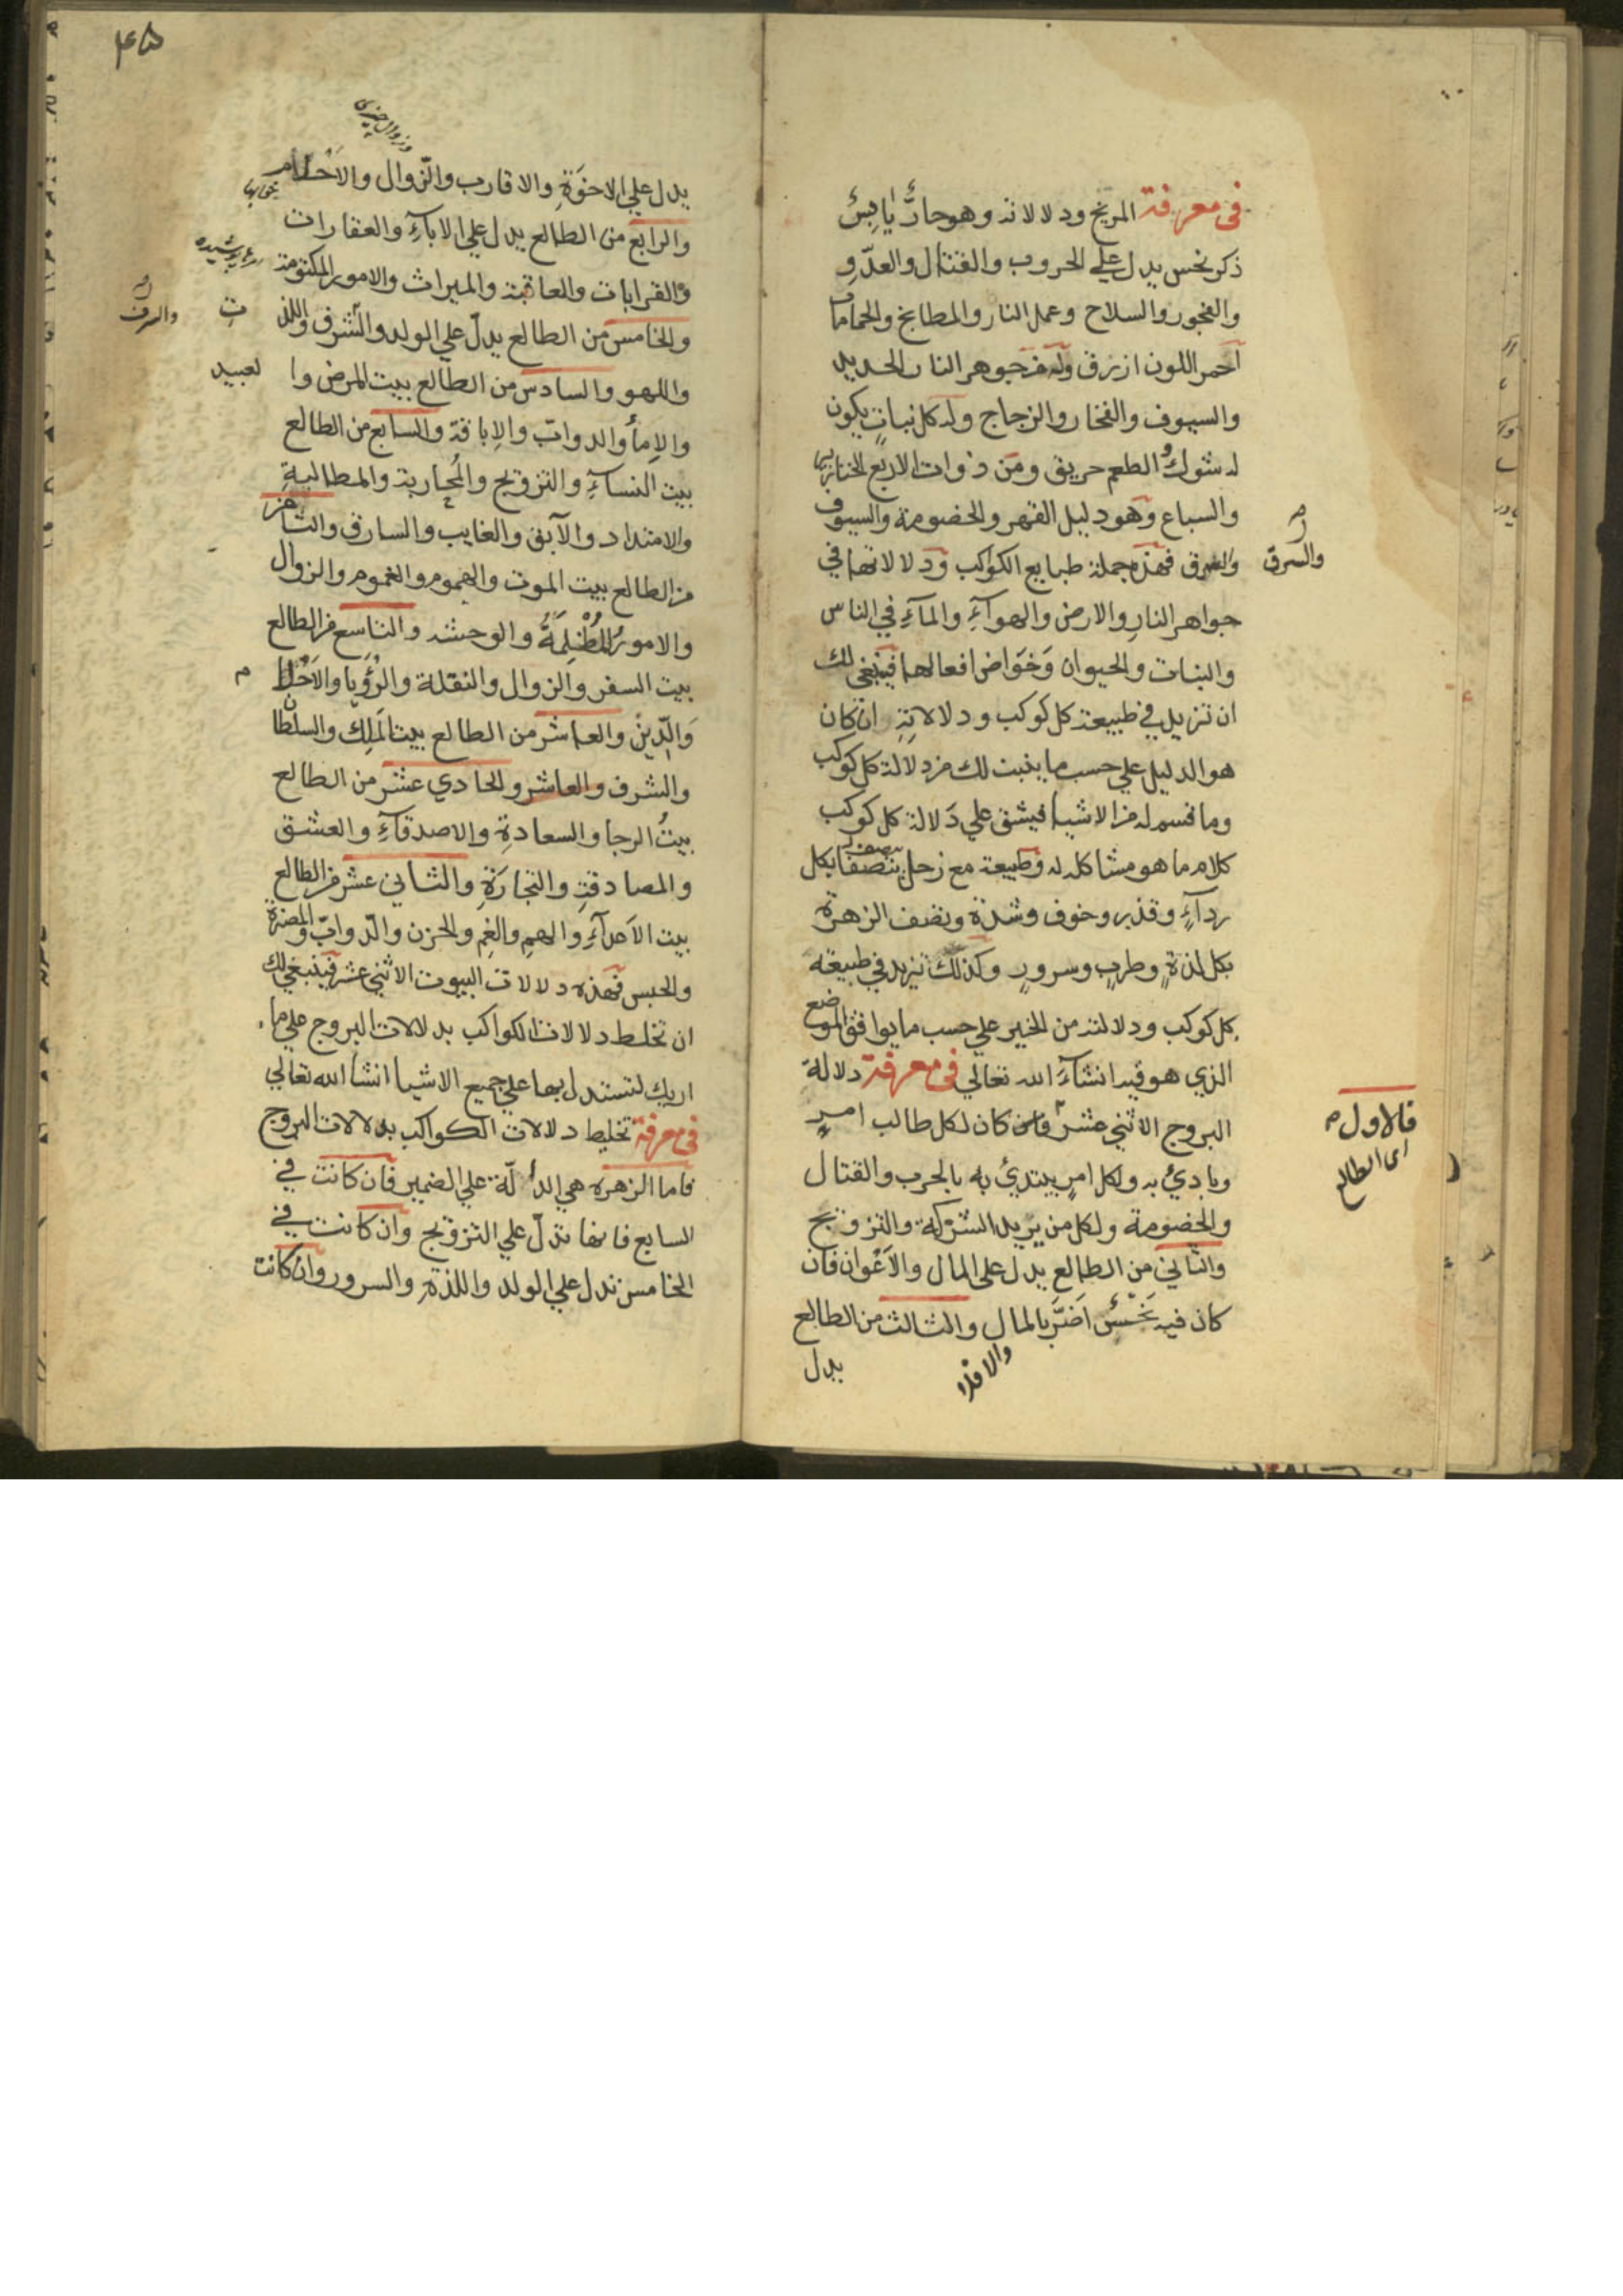 فى معرفة المريخ ودلالاته وهو حارٌّ يابسٌ
ذكر نحس يدل علي الحروب والقتال والعدّوِ
والفجور والسلاح وعمل النار والمطابخ والحمامات
احمر اللون ازرق وله من جوهر النار الحديد
والسيوف والفخار والزجاج وله كل نباتٍ يكون
له شوك والطعم حريق ومن ذوات الاربع الخنازير
والسباع وهو دليل القهر والخصومة والسيوف
والشرق فهذه جملة طبايع الكواكب ودلالاتها في
والسرق
جواهر النارِ والارض والهوآءِ والمآءِ في الناس
والنبات والحيوان وَخَوَاص افعالها فينبغي لك
ان تزيل في طبيعة كل كوكب ودلالاتِهِ ان كان
هو الدليل علي حسب ما يثبت لك من دلالة كل كوكب
وما قسم له من الاشيا فيشق علي دَلالة كل كوكب
كلام ما هو مشاكله له وطبيعة مع زحل بكل
ردآءٍ وقذر وخوف وشدّة ونصف الزهرة
بكل لذةٍ وطربٍ وسرورٍ وكذلك تزيد في طبيعة
كل كوكب ودلالته من الخير علي حسب ما يوافق الموضع
الذي هو فيه انشآءَ الله تعالي فى معرفة دلالة
البروج الاثني عشر كان لكل طالب امرٍ
فالاول
اى الطالع
وبادئ به ولكل امرٍ يبتدئ به بالحرب والقتال
والخصومة ولكل من يريد الشركة والتزويج
والثاني من الطالع يدل على المال والاَعْوان فان
كان فيه نَحْسٌ اَضَرَّ بالمال والثالث من الطالع
يدل
٤٥
يدل علي الاخوَةِ والاقارب والزوال والاَحْلام
والرابع من الطالع يدل علي الابآءِ والعقارات
والقرابات والعاقبة والميراث والامور المكتومة
والخامس من الطالع يدلّ علي الولد والشرف واللذ
ت
والسرف
واللهو والسادس من الطالع بيت المرض وا
لعبيد
والاِمأ والدوابّ والاِباقة والسابع من الطالع
بيت النسآءِ والتزويج والمُحاربة والمطالبةِ
والامتداد والآبق والغايب والسارق والثامن
من الطالع بيت الموت والهموم والغموم والزوال
والامور المُظْلِمَةُ والوحشه والتاسع من الطالع
بيت السفر والزوال والنقلة والرُؤيا والاَحْلا
م
وَالدّينْ والعاشر من الطالع بيت المَلِك والسلطان
والشرف والعاشر والحادي عشر من الطالع
بيتُ الرجا والسعادةِ والاصدقآءِ والعشق
والمصادقةِ والتجارَةِ والثاني عشر من الطالع
بيت الاَعدآءِ والهمِ والغمِ والحزن والدّوابّ والمضرة
والحبس فهذه دلالات البيوت الاثني عشر فينبغي لك
ان تخلط دلالات الكواكب بدلالات البروج علي ما
اريك لتستدل بها علي جميع الاشيا انشأ الله تعالي
فى معرفة تخليط دلالات الكواكب بدلالات البروج
فاما الزهره هي الدألّة علي الضمير فان كانت في
السابع فانها تدلّ علي التزويج وان كانت في
الخامس تدل علي الولد واللذة والسرور وان كانت